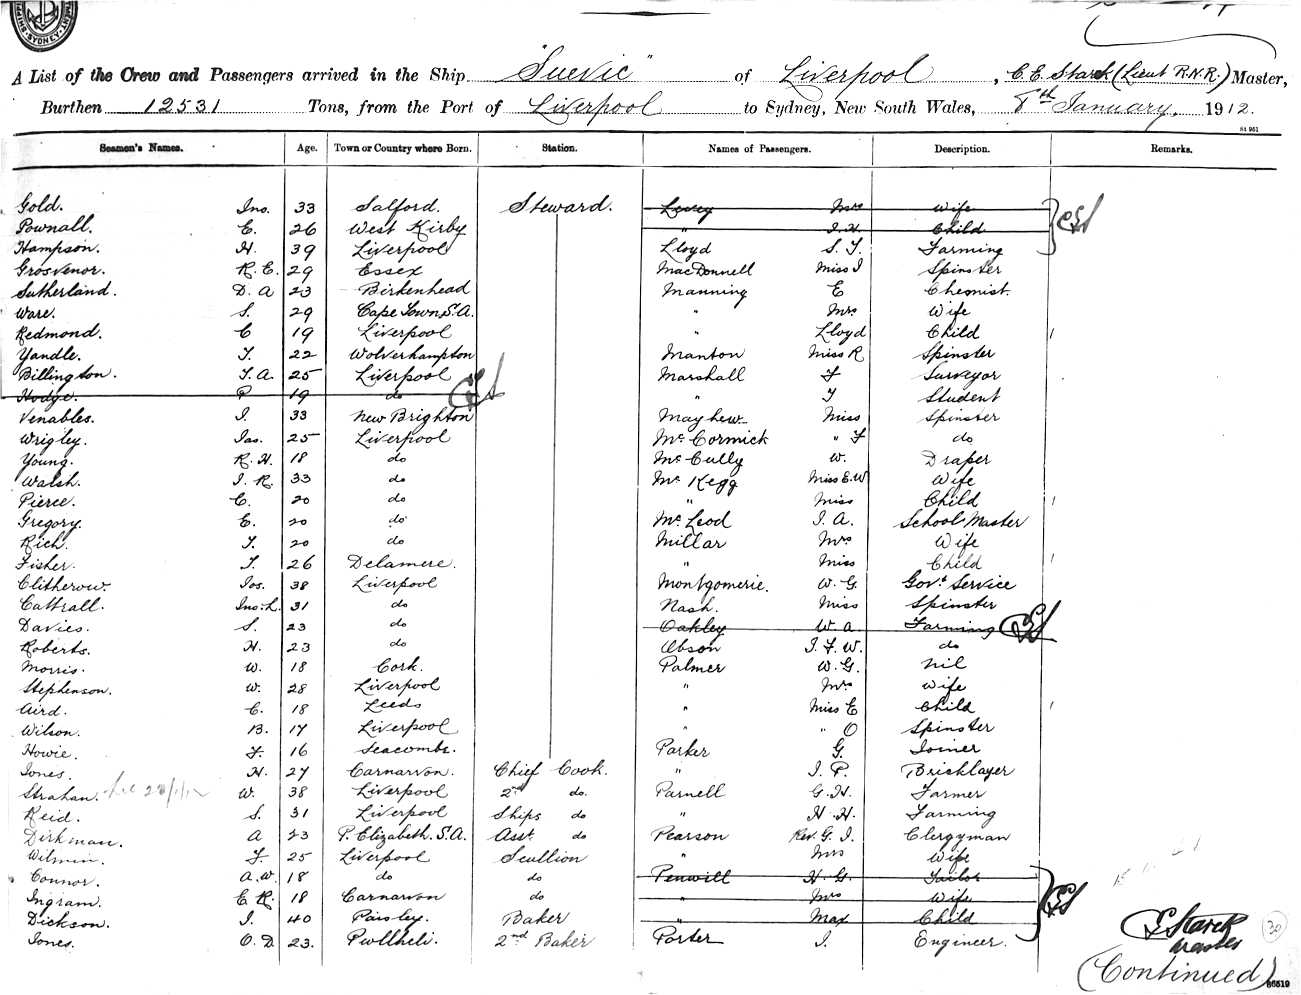 A List of the Crew and Passengers arrived in the Ship "Suevic" of Liverpool, C. E. Starck (Lieut R.N.R.) Master,
Burthen 12531 Tons, from the Port of Liverpool to Sydney, New South Wales, 8th January, 1912.
84 951
Seamen's Names. Age. Town or Country where Born. Station. Names of Passengers. Description. Remarks.
Gold. Jno. 33 Salford. Steward. Levey Mrs Wife
Pownall. C. 26 West Kirby " J. H. Child
Hampson. H. 39 Liverpool Lloyd S. T. Farming
Grosvenor. R. E. 29 Essex MacDonnell Miss I Spinster
Sutherland. D. A 23 Birkenhead Manning E Chemist.
Ware. S. 29 Cape Town S.A. " Mrs Wife
Redmond. C 19 Liverpool " Lloyd Child 1
Yandle. T. 22 Wolverhampton Manton Miss R Spinster
Billington. T. A. 25 Liverpool Marshall F Surveyor
Hodge. P 19 do " F Student
Venables. J. 33 New Brighton Mayhew Miss Spinster
Wrigley. Jas. 25 Liverpool McCormick " F do
Young. R. H. 18 do McCully W. Draper
Walsh. J. R. 33 do McKegg Miss E.W Wife
Pierce. C. 20 do " Miss Child 1
Gregory. E. 20 do McLeod J. A. School Master
Rich. T. 20 do Millar Mrs Wife
Fisher. T. 26 Delamere. " Miss Child 1
Clitherow. Jos. 38 Liverpool Montgomerie. W. G. Govt Service
Cattrall. Jno. L. 31 do Nash. Miss Spinster
Davies. S. 23 do Oakley W. A. Farming
Roberts. H. 23 do Obson J. F. W. do
Morris. W. 18 Cork. Palmer W. G. nil
Stephenson. W. 28 Liverpool " Mrs Wife
Aird. C. 18 Leeds " Miss E Child 1
Wilson. B. 17 Liverpool " " O Spinster
Howie. F. 16 Seacombe. Parker G. Joiner
Jones. H. 27 Carnarvon. Chief Cook. " J. P. Bricklayer
Strahan. W. 38 Liverpool 2nd do. Parnell G. H. Farmer
Reid. S. 31 Liverpool Ships do " H. H. Farming
Dirkman. A 23 P. Elizabeth. S.A. Asst. do Pearson Rev. G. J. Clergyman
Wilmin. F. 25 Liverpool Scullion " Mrs Wife
Connor. A. W. 18 do do Penwill H. G. Tailor
Ingram. E R. 18 Carnarvon do " Mrs Wife
Dickson. J. 40 Paisley. Baker " Max Child
Jones. O. D. 23. Pwllheli. 2nd Baker Porter J. Engineer.
C E Starck
Master
30
(Continued)
86519